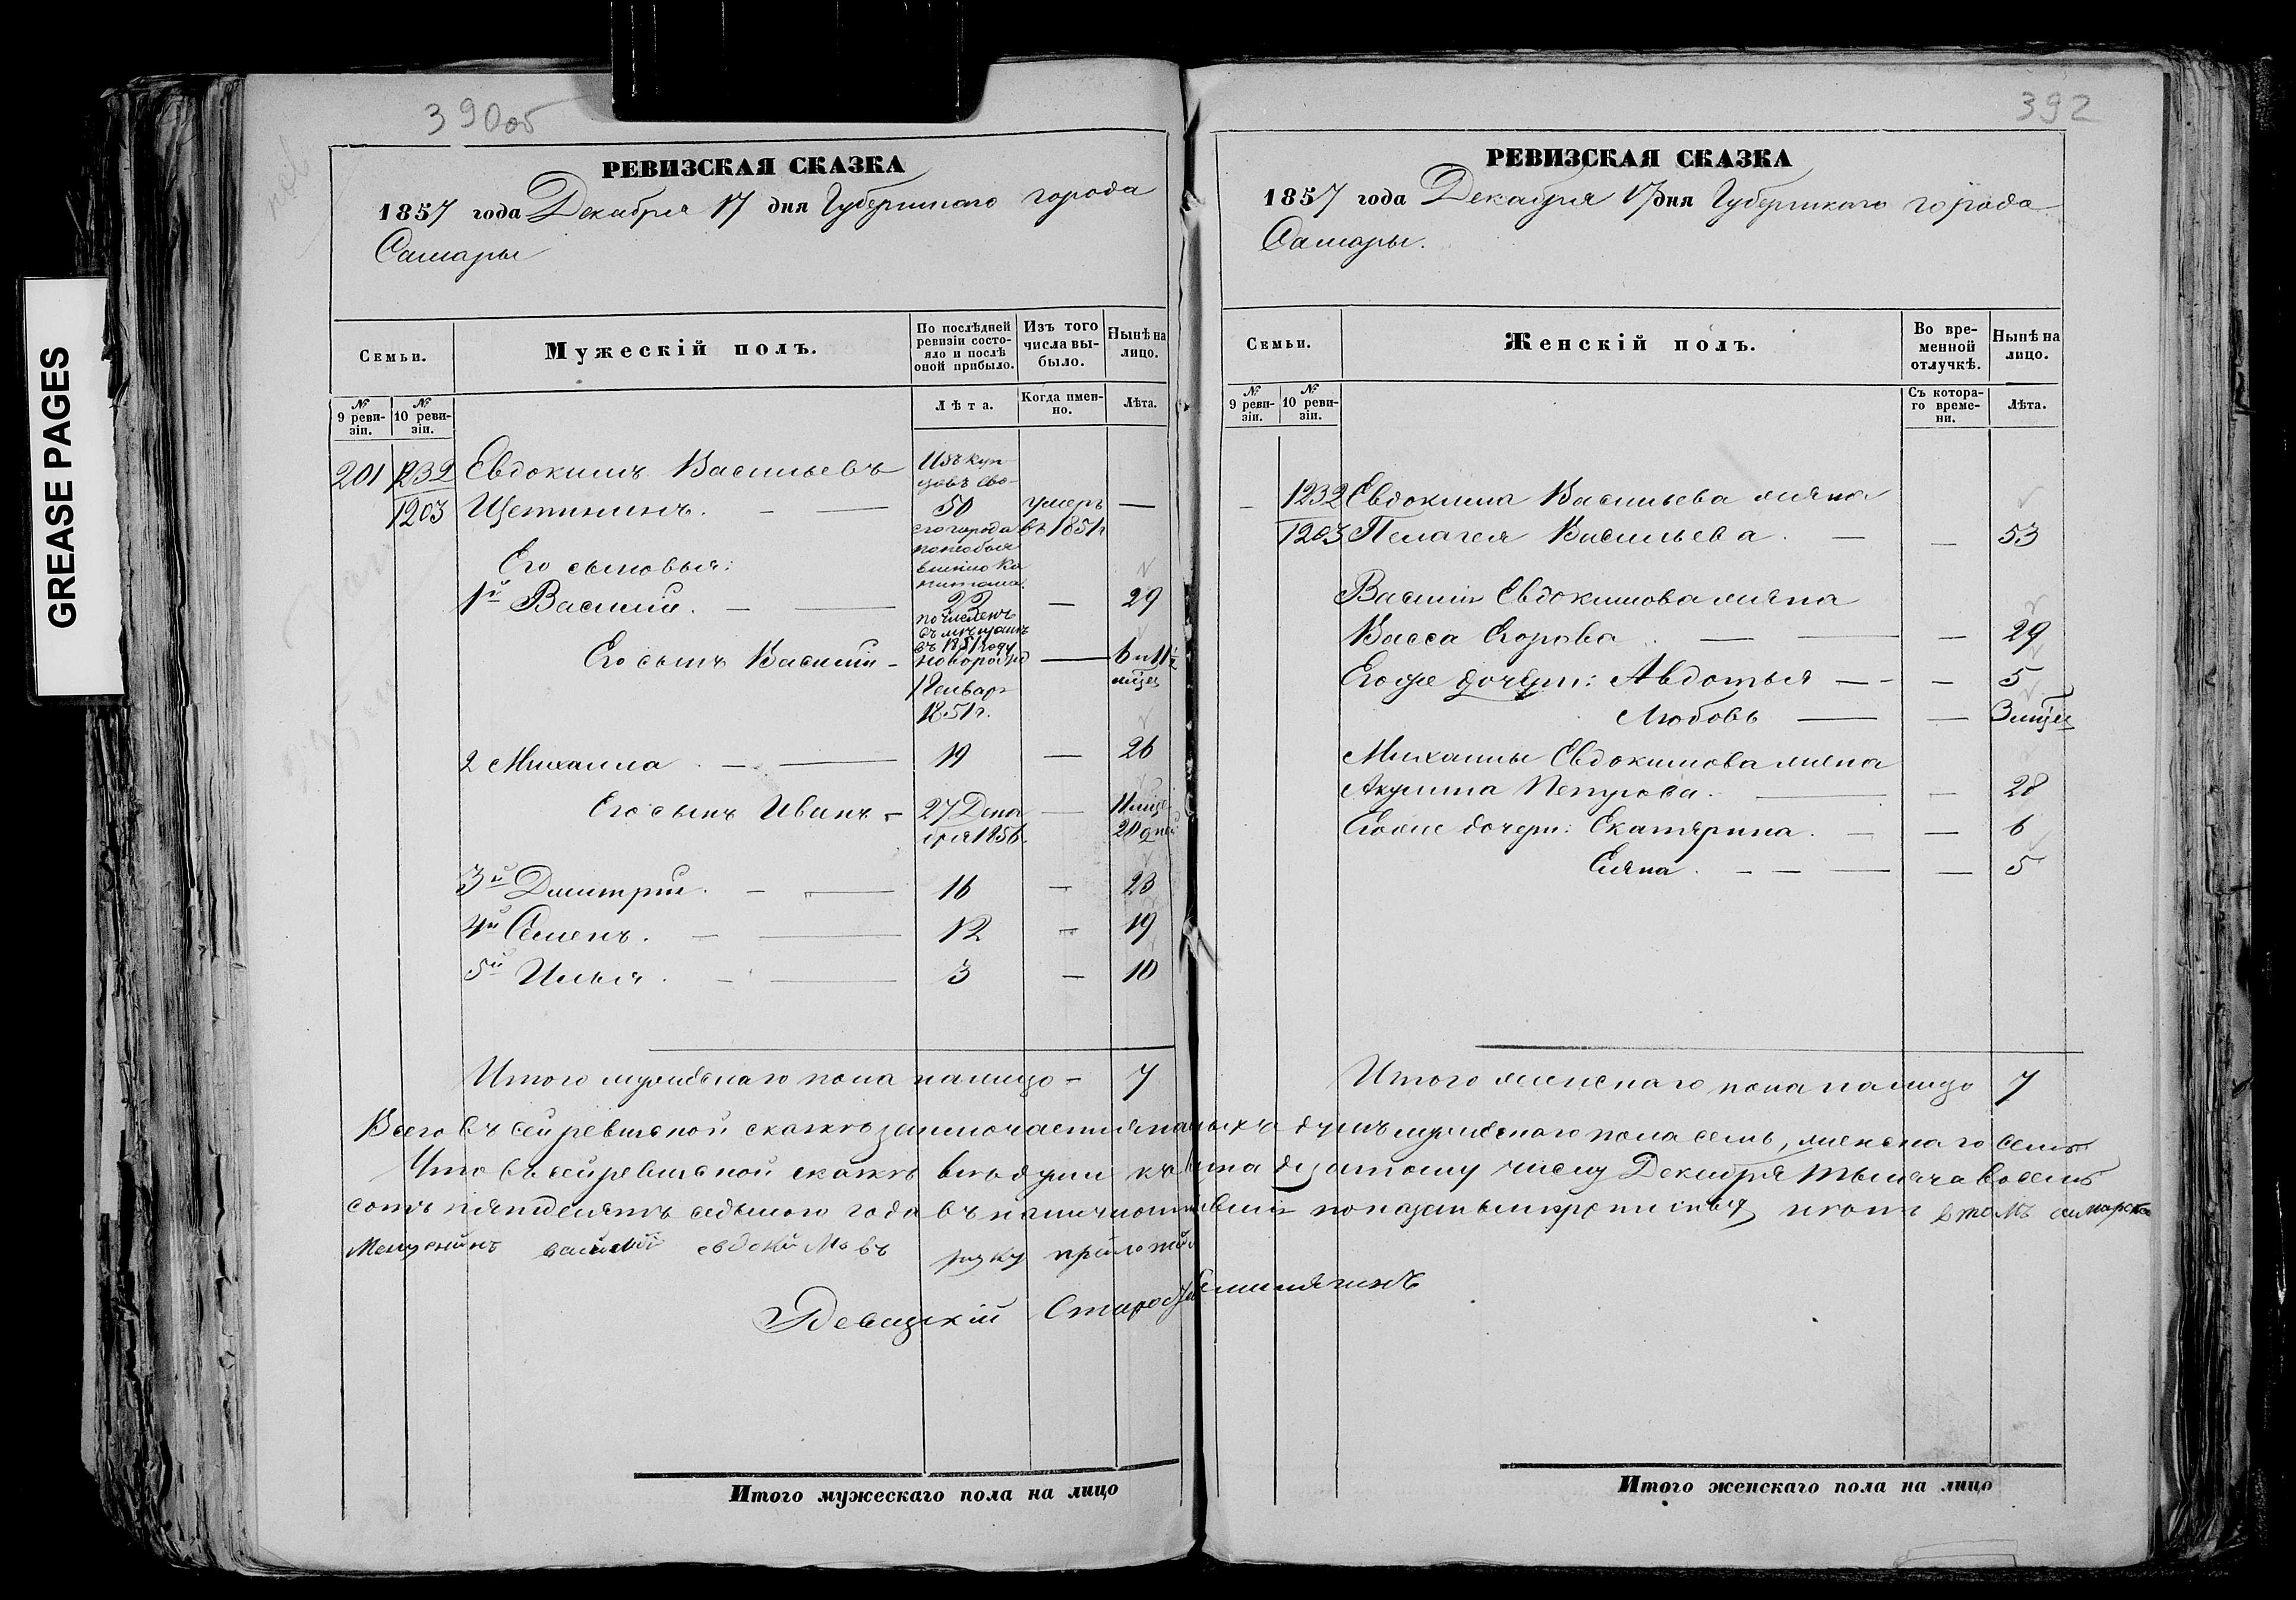 GREASE PAGES
390об
РЕВИЗСКАЯ СКАЗКА
1857 года Декабря 17 дня Губернскаго города
Самары
Семьи.
Мужескій полъ.
По послѣдней ревизіи состояло и послѣ оной прибыло.
Изъ того числа выбыло.
Нынѣ на лицо.
№ 9 ревизіи.
№ 10 ревизіи.
Лѣта.
Когда именно.
Лѣта.
201 1232 Евдокимъ Васильевъ Изъ купцовъ
1203 Щетининъ. 50 умеръ въ 1851 г
Его сыновья:
1й Василий. 22 29
причисленъ въ мѣщане въ 1851 году
Его сынъ Василий новорожд 6 и 11½ мѣсец
1 Генвар 1851 г.
2 Михаила 19 26
Его сынъ Иванъ 27 Декабря 1856 11 мѣсе 20 дней
3й Дмитрий. 16 23
4й Семенъ. 12 19
5й Илья. 3 10
Итого мужескаго пола налицо 7
Итого мужескаго пола на лицо
392
РЕВИЗСКАЯ СКАЗКА
1857 года Декабря 17 дня Губернскаго города
Самары.
Семьи.
Женскій полъ.
Во временной отлучкѣ.
Нынѣ на лицо.
№ 9 ревизіи.
№ 10 ревизіи.
Съ котораго времени.
Лѣта.
1232 Евдокима Васильева жена
1203 Пелагея Васильева. 53
Василія Евдокимова жена
Васса Егорова. 29
Его же дочери: Авдотья 5
Любовь 3 мѣсец
Михаилы Евдокимова жена
Акулина Петрова. 28
Его же дочери: Екатерина. 6
Елена. 5
Итого женскаго пола налицо 7
Всего въ сей ревизской сказкѣ заключается наличныхъ душъ мужескаго пола семь, женскаго семь
Что въ сей ревизской сказкѣ всѣ души къ Декабря тысяча восемь
сотъ пятьдесятъ седьмого года въ наличности в томъ самарской
Мещенинъ василий евдокимовъ руку приложилъ
Итого женскаго пола на лицо